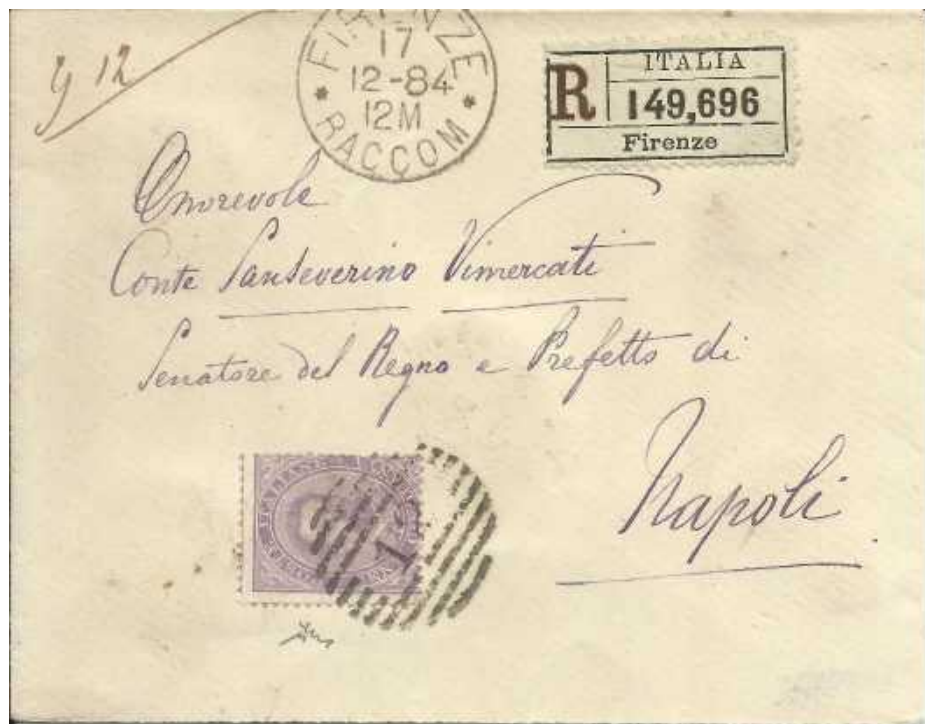 g 12
FIRENZE
17
12-84
12M
* RACCOM *
R
ITALIA
149,696
Firenze
Onorevole
Conte Sanseverino Vimercati
Senatore del Regno e Prefetto di
Napoli
1